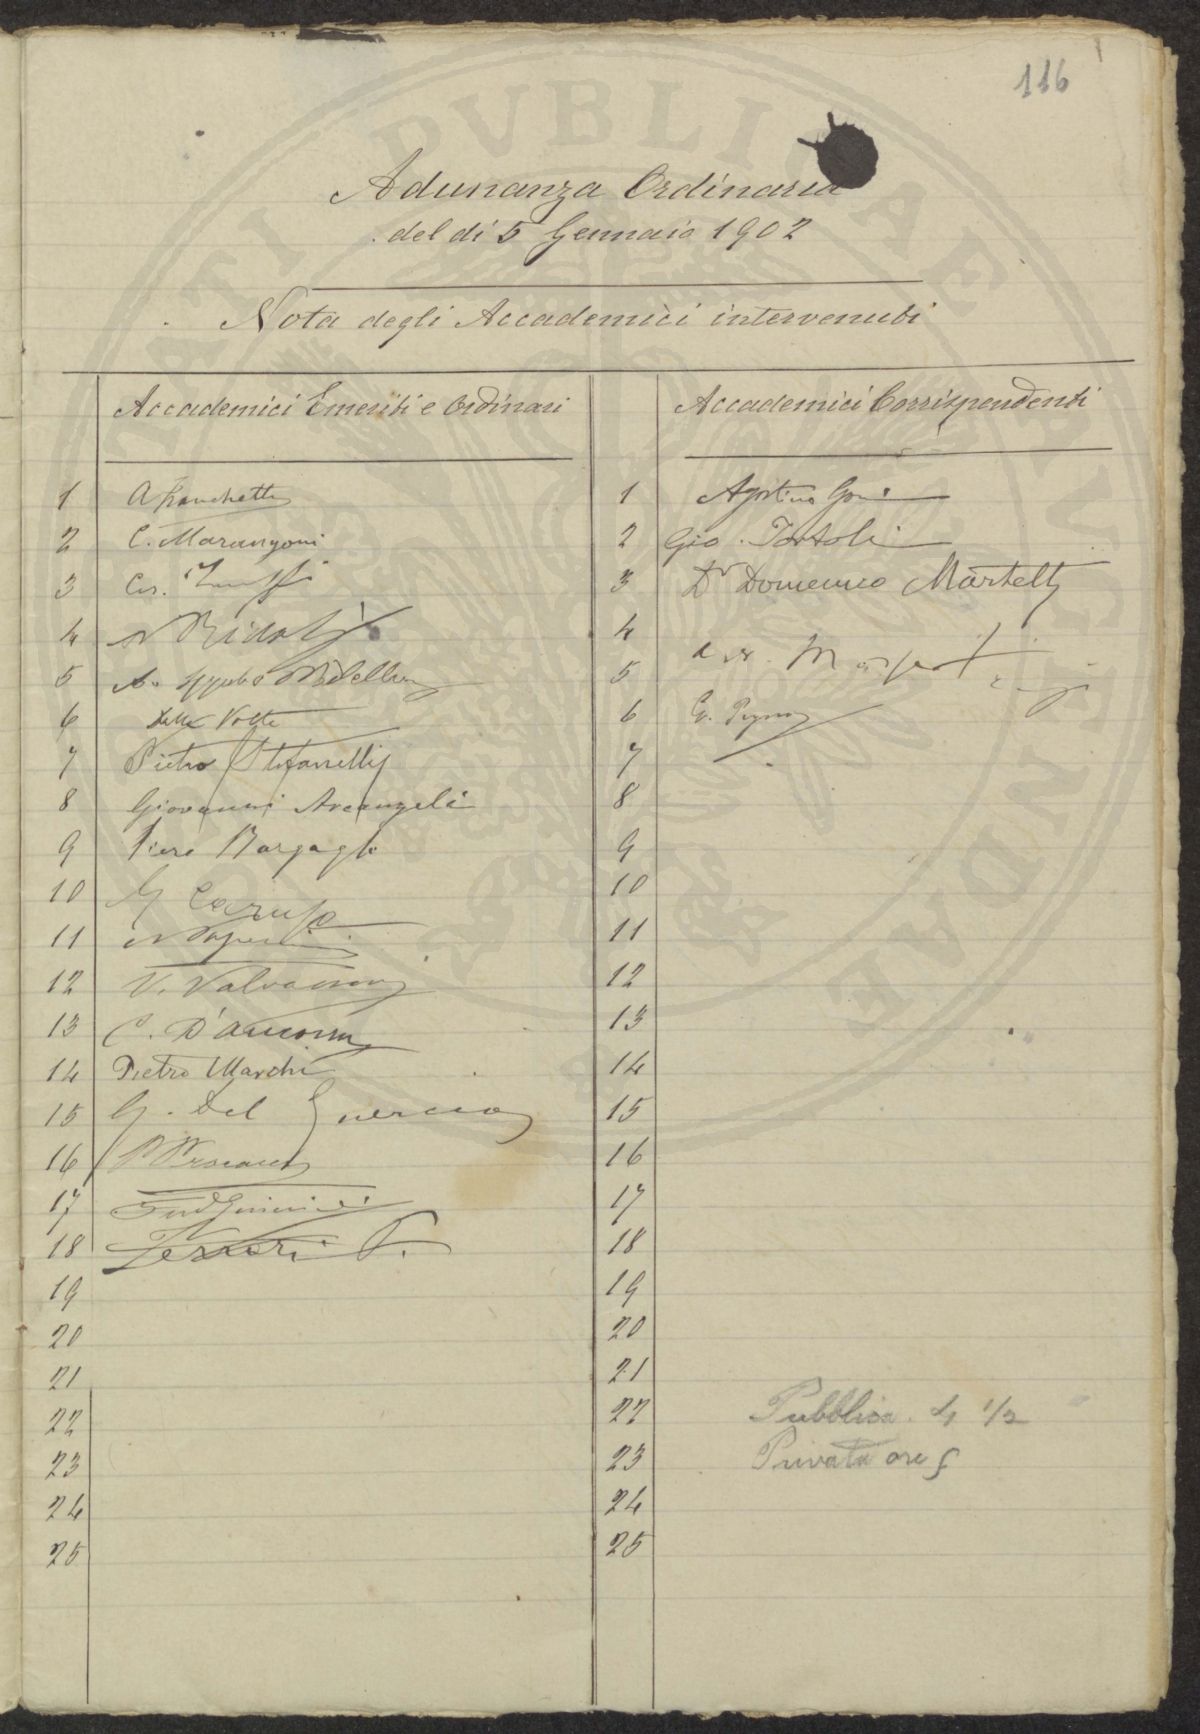 116
Adunanza Ordinaria
del dì 5 Gennaio 1902
Nota degli Accademici intervenuti
Accademici Emeriti e Ordinari
Accademici Corrispondenti
1 A Franchetti
2 C. Marangoni
3 Ces.
4 Ridolfi
5 A.
6 Della Volta
7 Pietro Stefanelli
8 Giovanni Arcangeli
9 Piero Bargagli
10 G Caruso
11
12 V. Valvassori
13 C. D'Ancona
14 Pietro Marchi
15 G. Del Guercio
16
17
18 Ferrari P.
19
20
21
22
23
24
25
1 Agostino Gori
2 Gio. Tortoli
3 Dr Domenico Martelli
4
5
6 G.
7
8
9
10
11
12
13
14
15
16
17
18
19
20
21
22 Pubblica 4 1/2
23 Privata ore 5
24
25